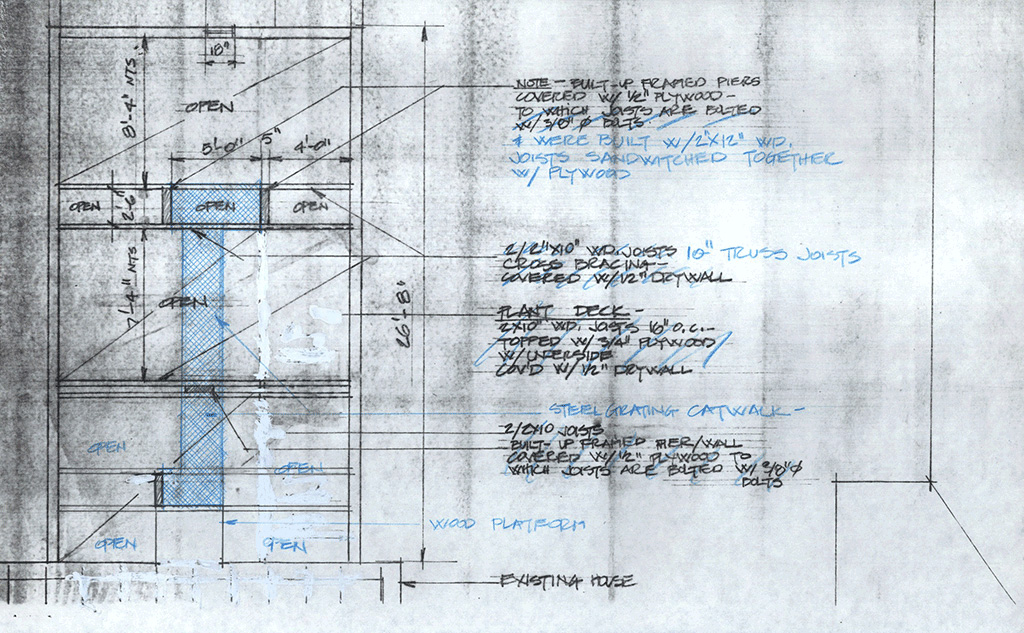 18"
8'-4" NTS
OPEN
5'-0"
5"
4'-0"
OPEN
2'-6"
OPEN
OPEN
7'-4" NTS
OPEN
26'-8"
OPEN
OPEN
OPEN
OPEN
NOTE - BUILT-UP FRAMED PIERS
COVERED W/ 1/2" PLYWOOD -
TO WHICH JOISTS ARE BOLTED
W/ 3/8" Ø BOLTS.
& WERE BUILT W/ 2"X12" WD.
JOISTS SANDWITCHED TOGETHER
W/ PLYWOOD
2/2"X10" WD. JOISTS 10" TRUSS JOISTS
CROSS BRACING -
COVERED W/ 1/2" DRYWALL
PLANT DECK -
2X10" WD. JOISTS 16" O.C. -
TOPPED W/ 3/4" PLYWOOD
W/ UNDERSIDE
COV'D W/ 1/2" DRYWALL
STEEL GRATING CATWALK -
2/2X10 JOISTS
BUILT-UP FRAMED PIER/WALL
COVERED W/ 1/2" PLYWOOD TO
WHICH JOISTS ARE BOLTED W/ 3/8" Ø
BOLTS
WOOD PLATFORM
EXISTING HOUSE